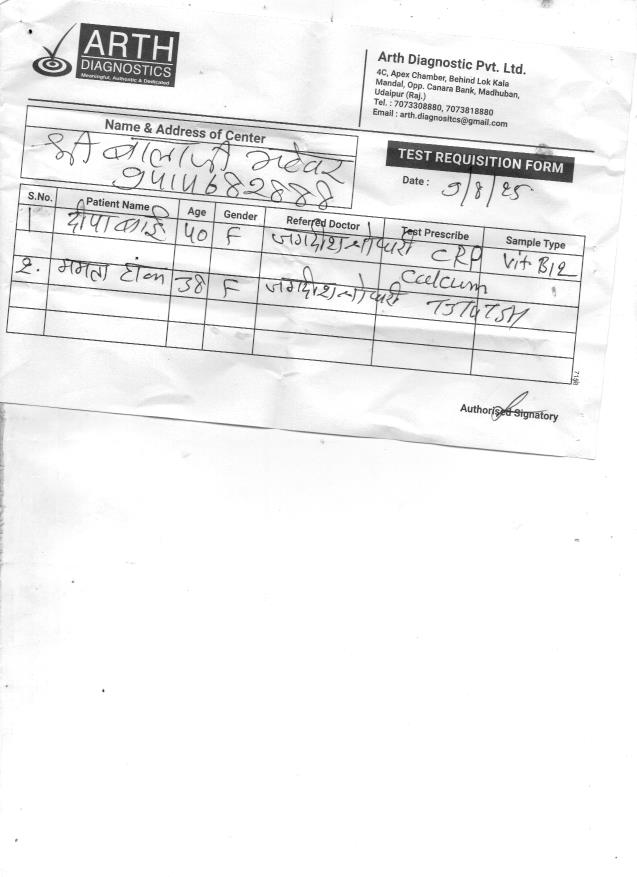 ARTH
DIAGNOSTICS
Meaningful, Authentic & Dedicated
Arth Diagnostic Pvt. Ltd.
4C, Apex Chamber, Behind Lok Kala
Mandal, Opp. Canara Bank, Madhuban,
Udaipur (Raj.)
Tel. : 7073308880, 7073818880
Email : arth.diagnositcs@gmail.com
Name & Address of Center
श्री बालाजी
9414682888
TEST REQUISITION FORM
Date : 9/8/25
S.No. Patient Name Age Gender Referred Doctor Test Prescribe Sample Type
1 40 F जगदीश CRP Vit B12
Calcum
2. ममता 38 F जगदीश T3T4TSH
7150
Authorised Signatory